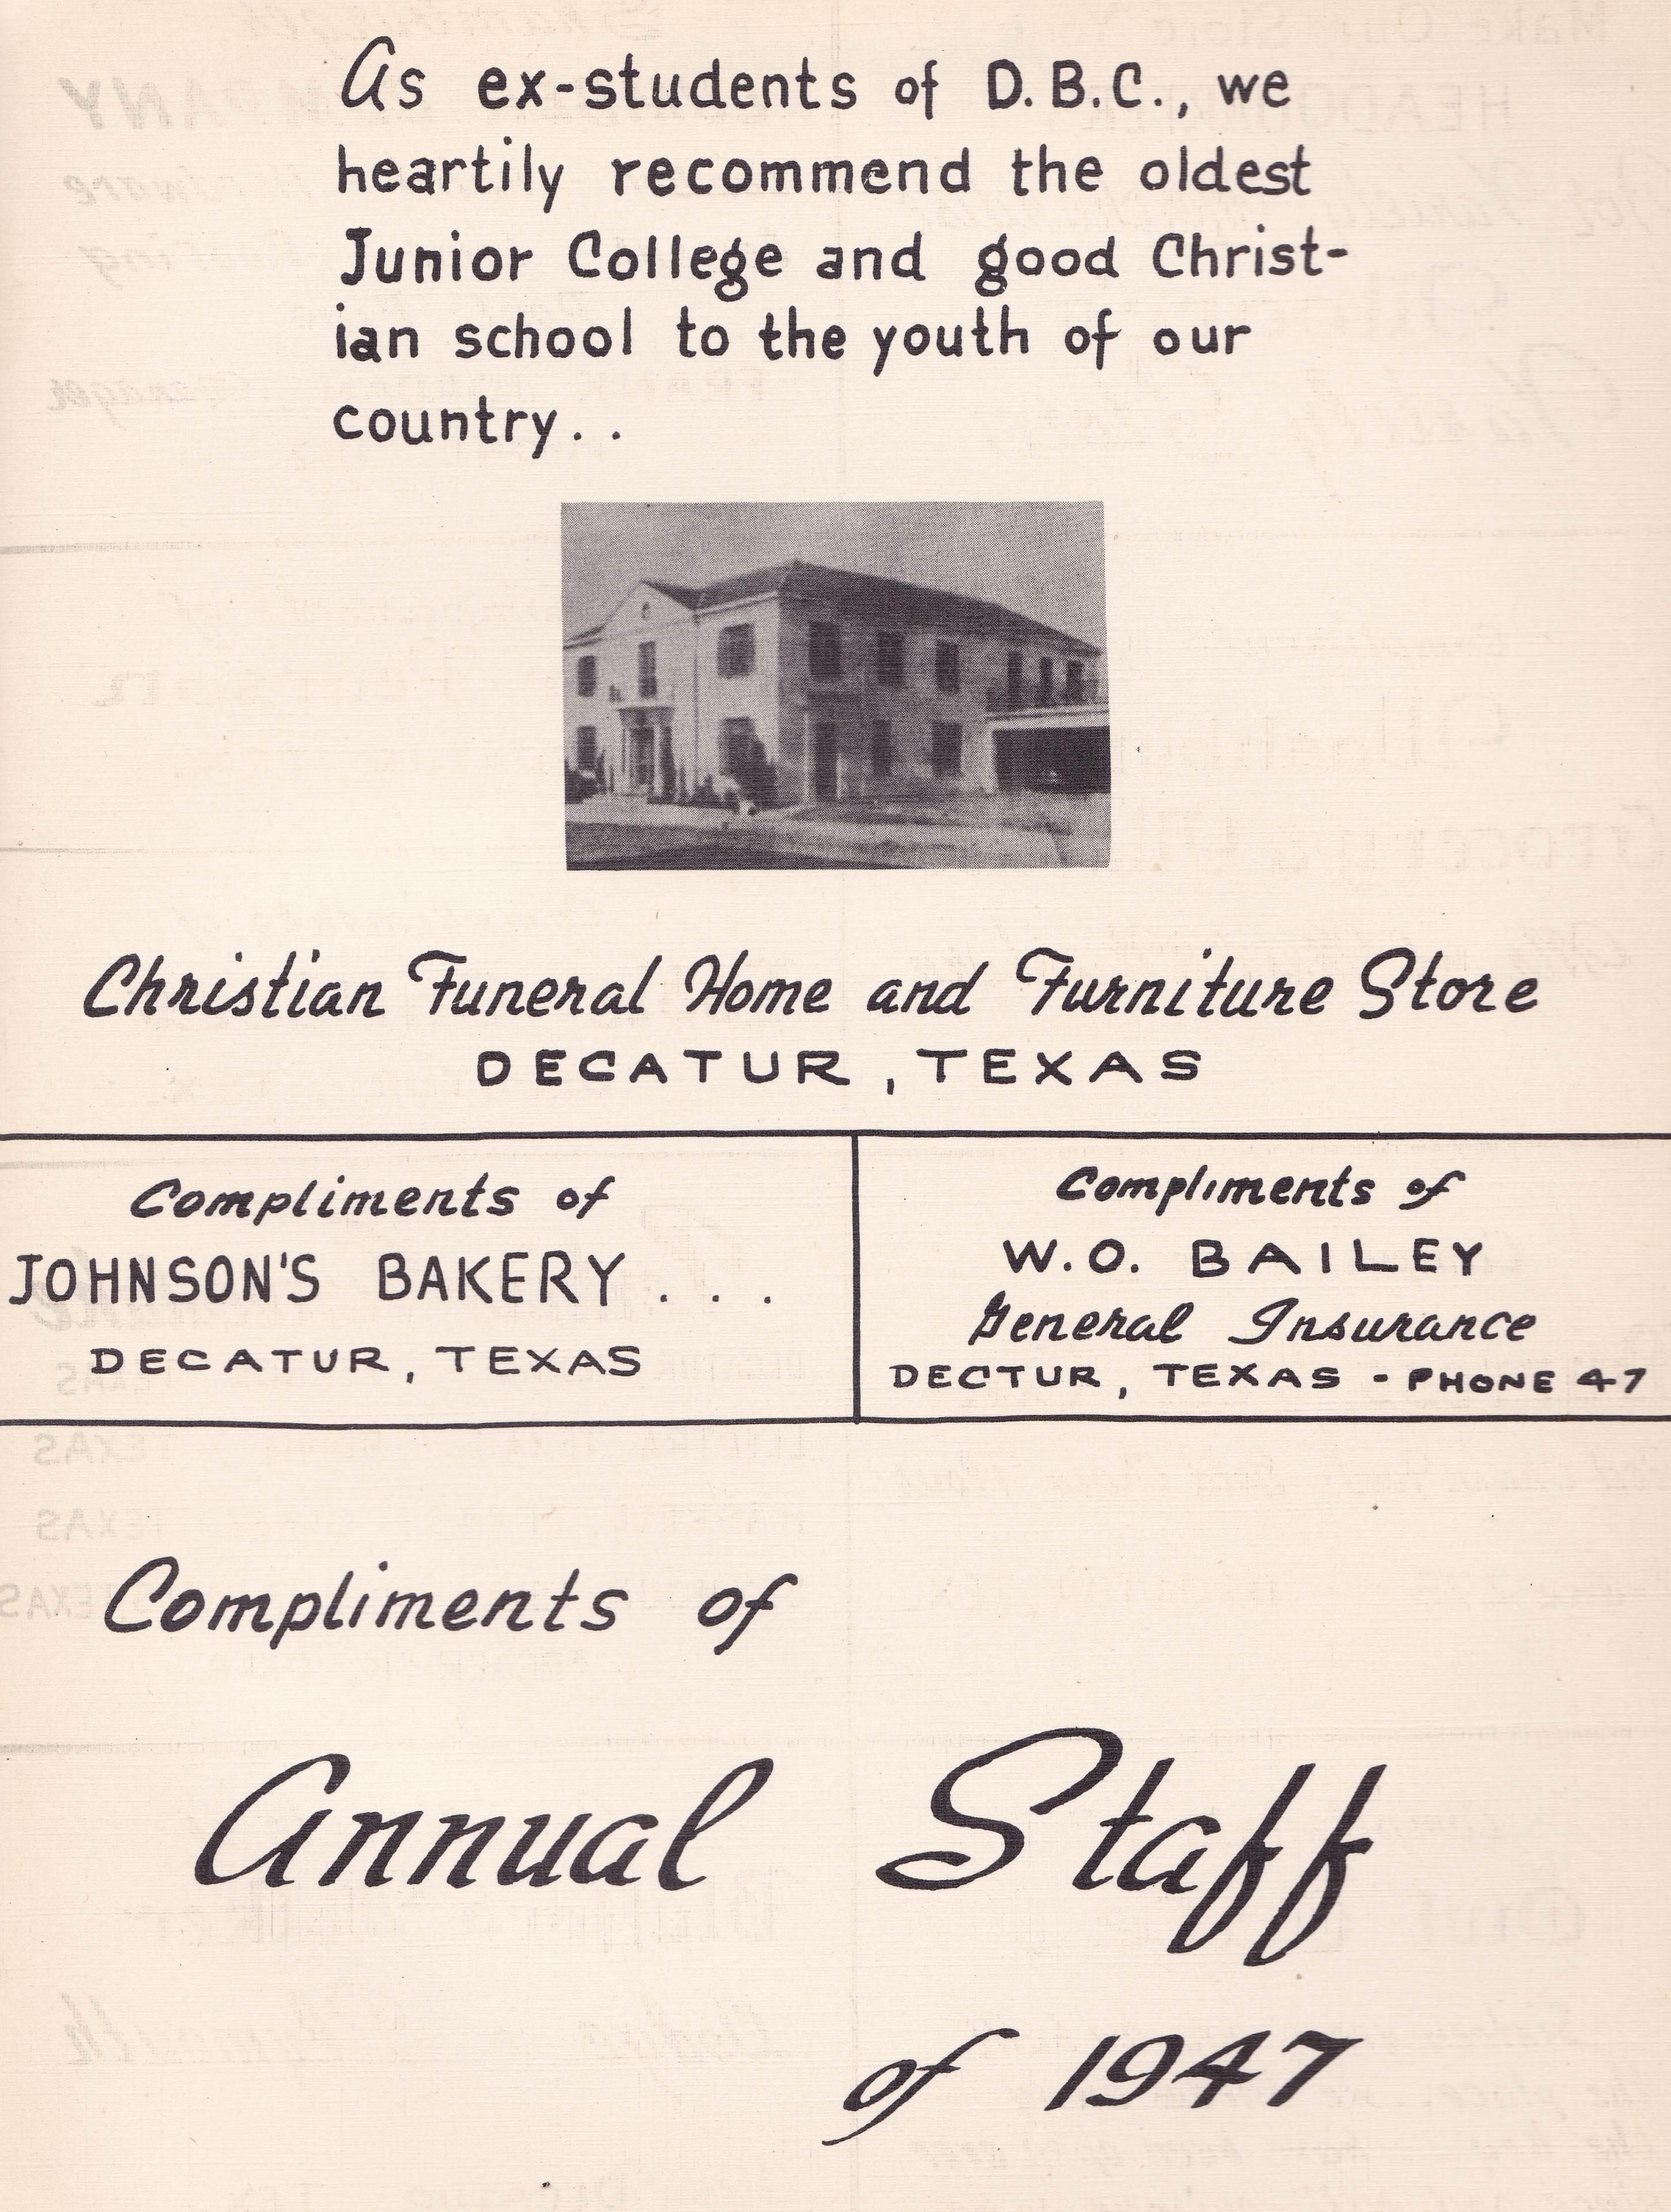 As ex-students of D.B.C., we
heartily recommend the oldest
Junior College and good Christ-
ian school to the youth of our
country..
Christian Funeral Home and Furniture Store
DECATUR, TEXAS
Compliments of
JOHNSON'S BAKERY...
DECATUR, TEXAS
Compliments of
W.O. BAILEY
General Insurance
DECTUR, TEXAS - PHONE 47
Compliments of
Annual Staff
of 1947